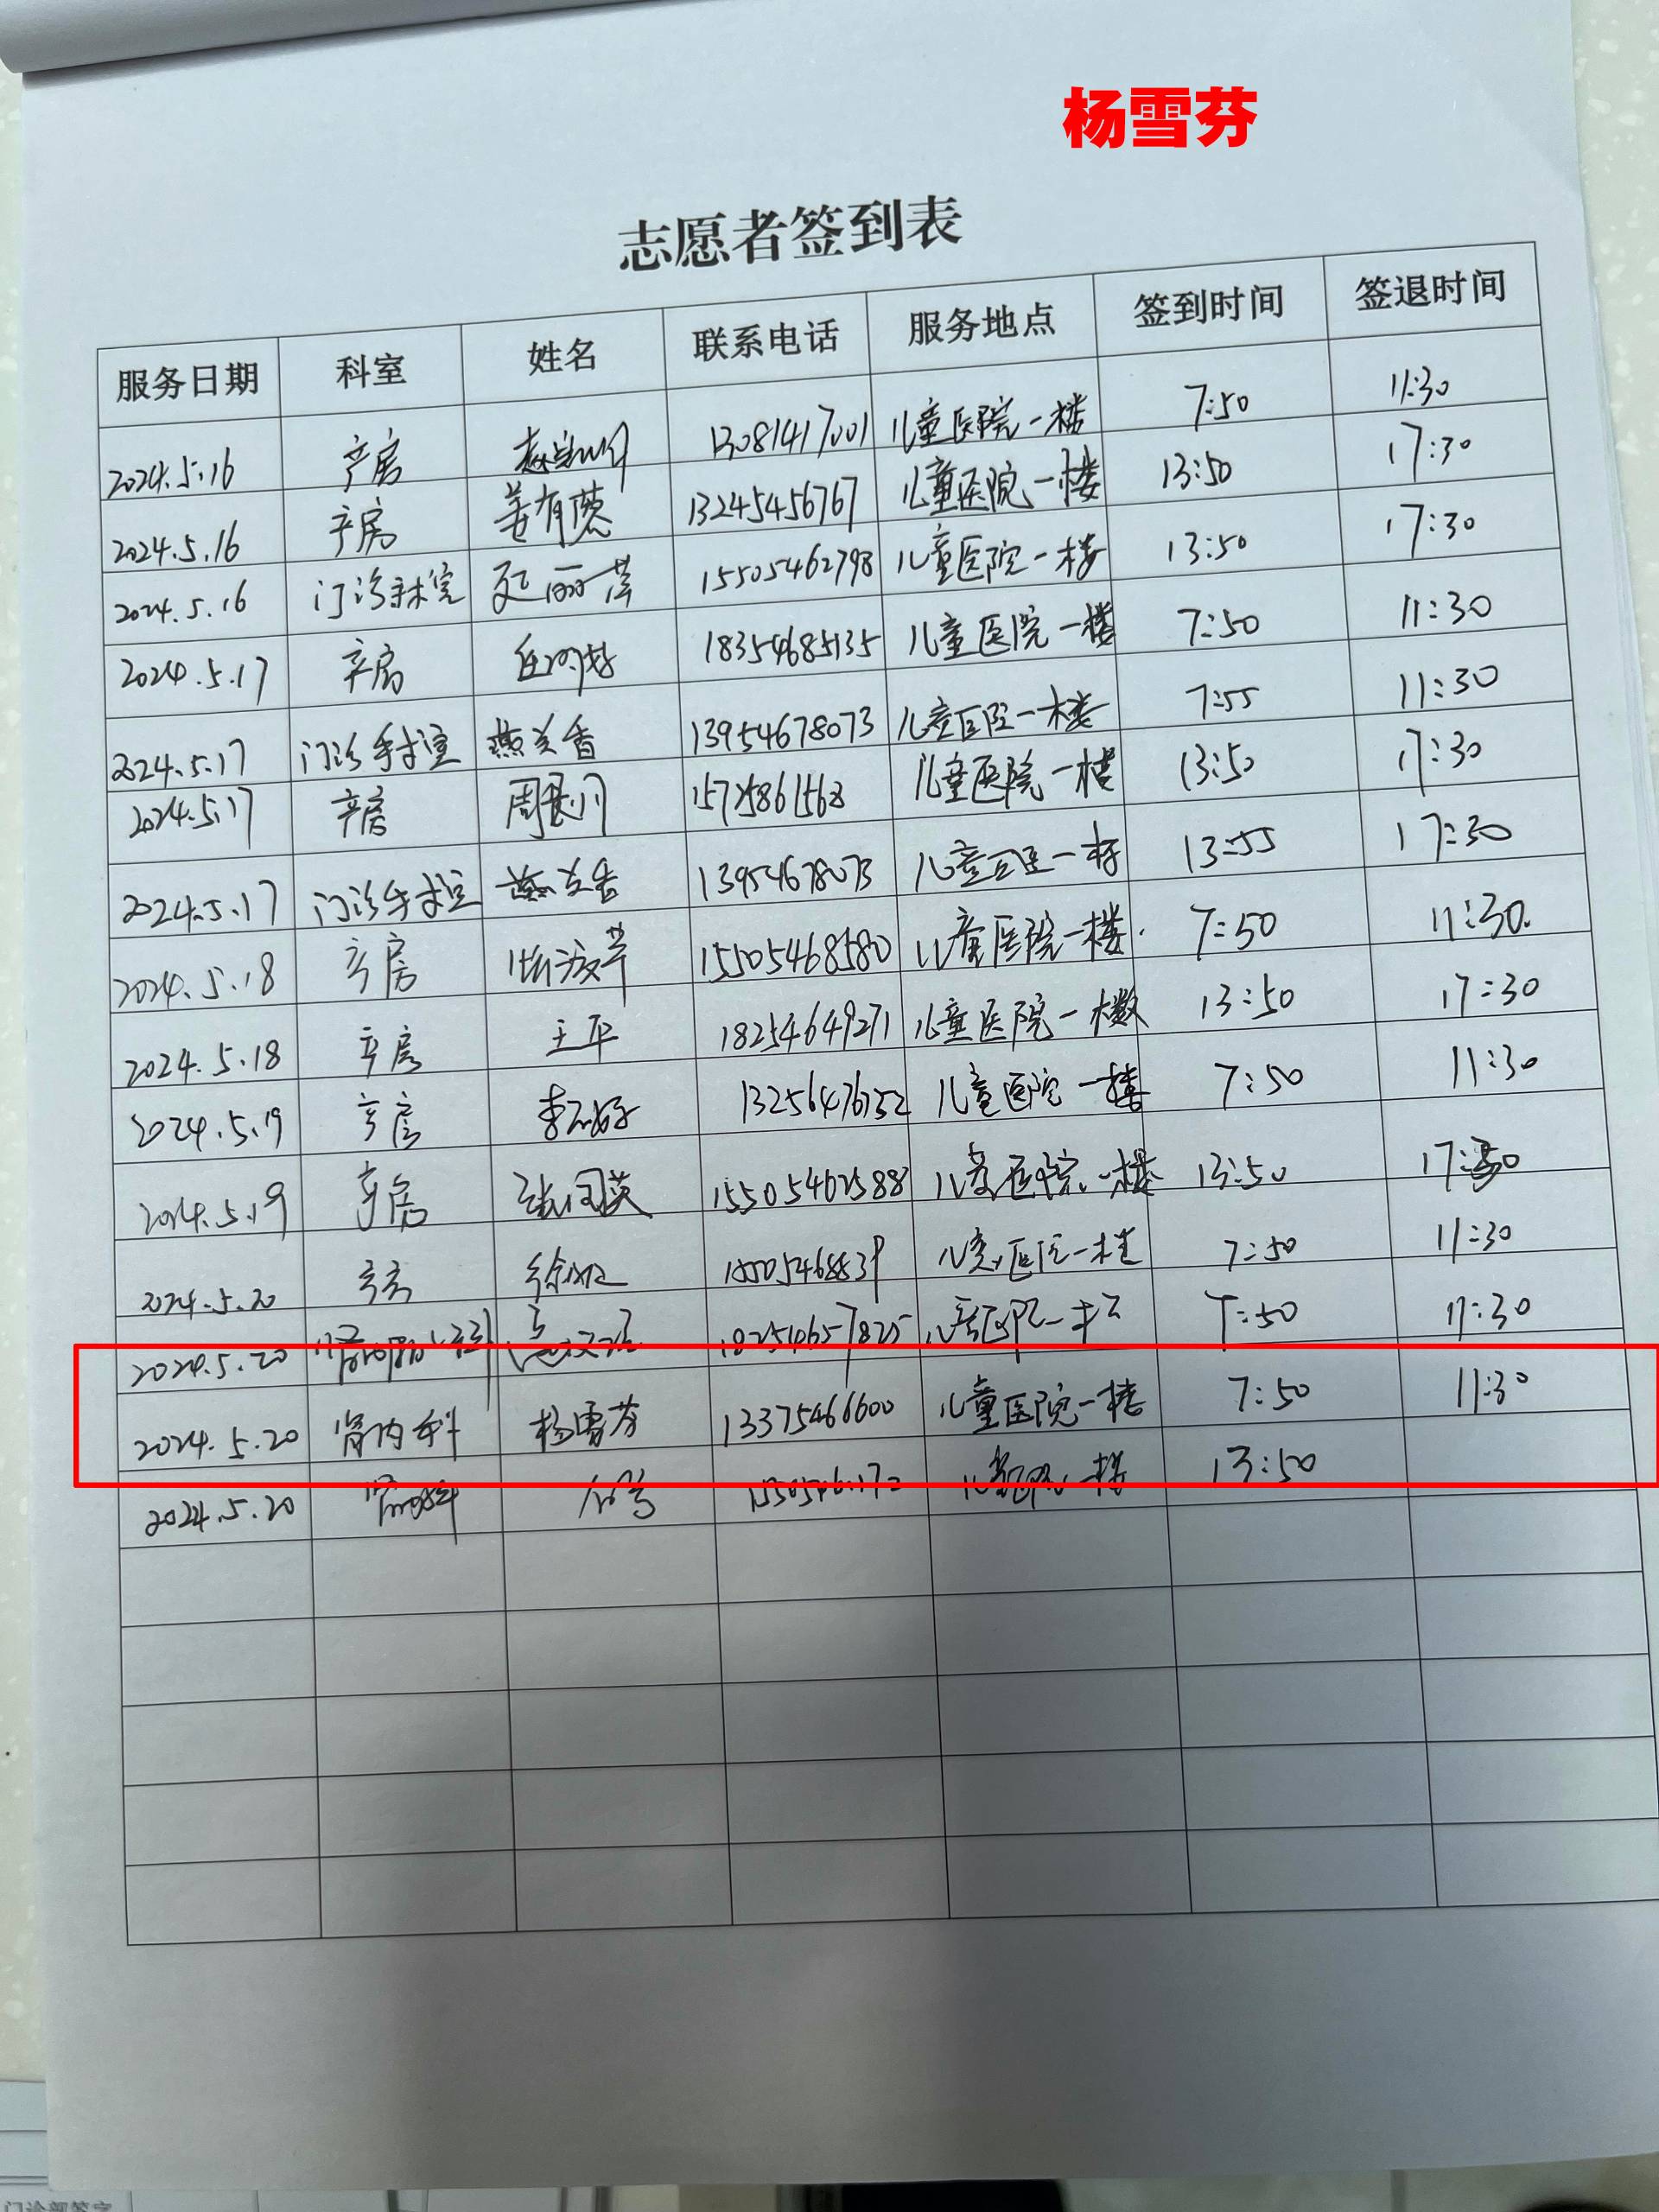 杨雪芬
志愿者签到表
服务日期 科室 姓名 联系电话 服务地点 签到时间 签退时间
2024.5.16 产房 13081417001 儿童医院一楼 7:50 11:30
2024.5.16 产房 姜有蕙 13245456767 儿童医院一楼 13:50 17:30
2024.5.16 门诊手术室 15505462798 儿童医院一楼 13:50 17:30
2024.5.17 产房 18354685135 儿童医院一楼 7:50 11:30
2024.5.17 门诊手术室 燕兰香 13954678073 儿童医院一楼 7:55 11:30
2024.5.17 产房 儿童医院一楼 13:50 17:30
2024.5.17 门诊手术室 燕兰香 13954678073 儿童医院一楼 13:55 17:30
2024.5.18 产房 15505468580 儿童医院一楼. 7:50 11:30.
2024.5.18 产房 王平 18254649271 儿童医院一楼 13:50 17:30
2024.5.19 产房 儿童医院一楼 7:50 11:30
2024.5.19 产房 15505462588 儿童医院一楼 13:50 17:30
2024.5.20 产房 儿童医院一楼 7:50 11:30
2024.5.20 儿童医院一楼 7:50 11:30
2024.5.20 肾内科 杨雪芬 13375466600 儿童医院一楼 7:50 11:30
2024.5.20 肾内科 儿童医院一楼 13:50
门诊部签字